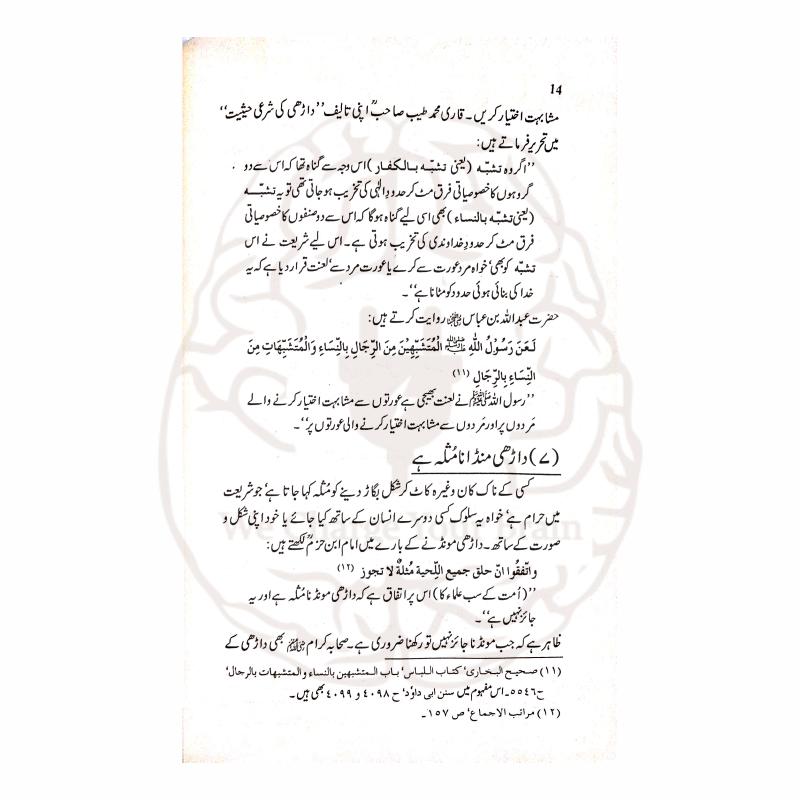 14
مشابہت اختیار کریں۔ قاری محمد طیب صاحبؒ اپنی تالیف ’’داڑھی کی شرعی حیثیت‘‘
میں تحریر فرماتے ہیں:
’’اگر وہ تشبّہ (یعنی تشبّہ بالکفار) اس وجہ سے گناہ تھا کہ اس سے دو
گروہوں کا خصوصیاتی فرق مٹ کر حدودِ الٰہی کی تخریب ہو جاتی تھی تو یہ تشبّہ
(یعنی تشبّہ بالنساء) بھی اسی لیے گناہ ہو گا کہ اس سے دو صنفوں کا خصوصیاتی
فرق مٹ کر حدودِ خداوندی کی تخریب ہوتی ہے۔ اس لیے شریعت نے اس
تشبّہ کو بھی‘ خواہ مرد عورت سے کرے یا عورت مرد سے‘ لعنت قرار دیا ہے کہ یہ
خدا کی بنائی ہوئی حدود کو مٹانا ہے‘‘۔
حضرت عبداللہ بن عباس ﷠ روایت کرتے ہیں:
لَعَنَ رَسُوْلُ اللّٰهِ ﷺ الْمُتَشَبِّهِيْنَ مِنَ الرِّجَالِ بِالنِّسَاءِ وَالْمُتَشَبِّهَاتِ مِنَ
النِّسَاءِ بِالرِّجَالِ (۱۱)
’’رسول اللہ ﷺ نے لعنت بھیجی ہے عورتوں سے مشابہت اختیار کرنے والے
مَردوں پر اور مَردوں سے مشابہت اختیار کرنے والی عورتوں پر‘‘۔
(۷) داڑھی منڈانا مُثلہ ہے
کسی کے ناک کان وغیرہ کاٹ کر شکل بگاڑ دینے کو مُثلہ کہا جاتا ہے‘ جو شریعت
میں حرام ہے‘ خواہ یہ سلوک کسی دوسرے انسان کے ساتھ کیا جائے یا خود اپنی شکل و
صورت کے ساتھ۔ داڑھی مونڈنے کے بارے میں امام ابن حزمؒ لکھتے ہیں:
واتّفقُوا انّ حلق جميع اللّحية مُثلةٌ لا تجوز (۱۲)
’’(اُمت کے سب علماء کا) اس پر اتفاق ہے کہ داڑھی مونڈنا مُثلہ ہے اور یہ
جائز نہیں ہے‘‘۔
ظاہر ہے کہ جب مونڈنا جائز نہیں تو رکھنا ضروری ہے۔ صحابہ کرام ﷢ بھی داڑھی کے
(۱۱) صحیح البخاری‘ کتاب اللباس‘ باب المتشبهين بالنساء والمتشبهات بالرجال‘
ح۵۵۴۶۔ اس مفہوم میں سنن ابی داوٗد‘ ح ۴۰۹۸ و ۴۰۹۹ بھی ہیں۔
(۱۲) مراتب الاجماع‘ ص ۱۵۷۔
We Charge Your Brain